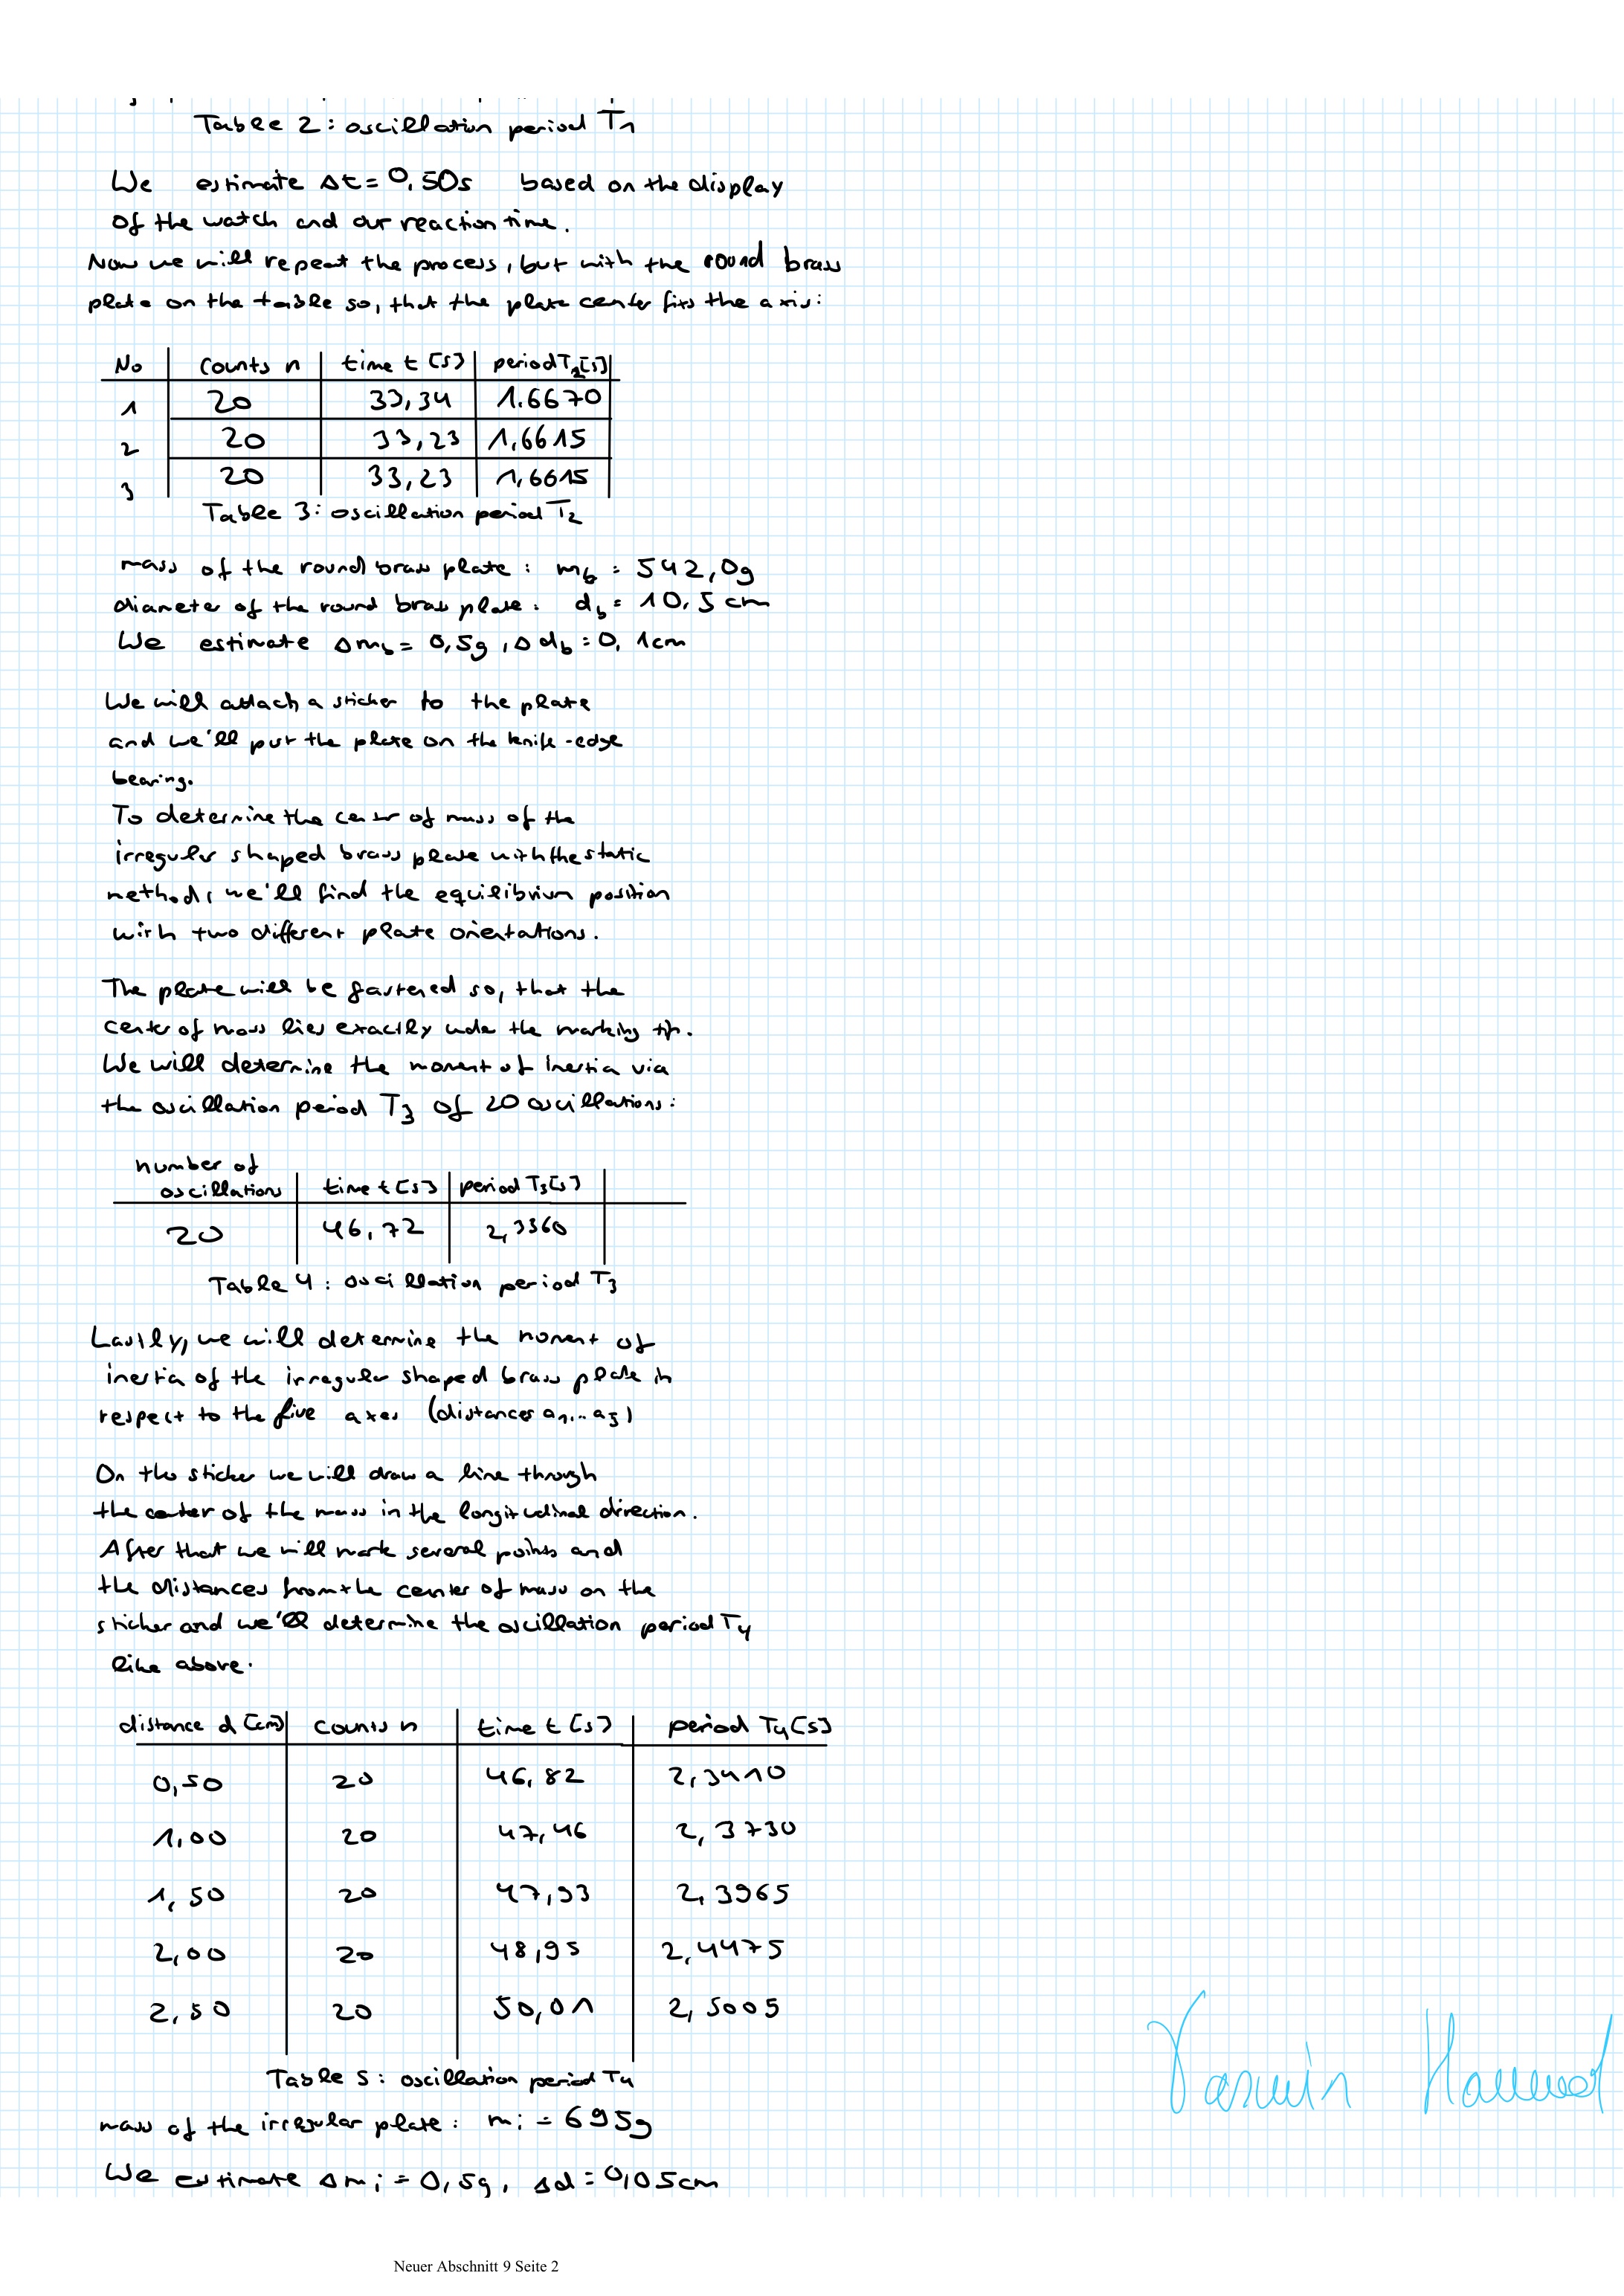 Table 2: oscillation period T₁
We estimate Δt = 0,50s based on the display
of the watch and our reaction time.
Now we will repeat the process, but with the round brass
plate on the table so, that the plate center fits the axis:
No | counts n | time t [s] | period T₂[s]
1 | 20 | 33,34 | 1.6670
2 | 20 | 33,23 | 1,6615
3 | 20 | 33,23 | 1,6615
Table 3: oscillation period T₂
mass of the round brass plate: m_b = 542,0g
diameter of the round brass plate: d_b = 10,5 cm
We estimate Δm_b = 0,5g, Δd_b = 0,1cm
We will attach a sticker to the plate
and we'll put the plate on the knife-edge
bearing.
To determine the center of mass of the
irregular shaped brass plate with the static
method, we'll find the equilibrium position
with two different plate orientations.
The plate will be fastened so, that the
center of mass lies exactly under the marking tip.
We will determine the moment of inertia via
the oscillation period T₃ of 20 oscillations:
number of
oscillations | time t [s] | period T₃[s]
20 | 46,72 | 2,3360
Table 4: oscillation period T₃
Lastly, we will determine the moment of
inertia of the irregular shaped brass plate in
respect to the five axes (distances a₁...a₅)
On the sticker we will draw a line through
the center of the mass in the longitudinal direction.
After that we will mark several points and
the distances from the center of mass on the
sticker and we'll determine the oscillation period T₄
like above.
distance d [cm] | counts n | time t [s] | period T₄[s]
0,50 | 20 | 46,82 | 2,3410
1,00 | 20 | 47,46 | 2,3730
1,50 | 20 | 47,93 | 2,3965
2,00 | 20 | 48,95 | 2,4475
2,50 | 20 | 50,01 | 2,5005
Table 5: oscillation period T₄
mass of the irregular plate: m_i = 695g
We estimate Δm_i = 0,5g, Δd = 0,05cm
Neuer Abschnitt 9 Seite 2